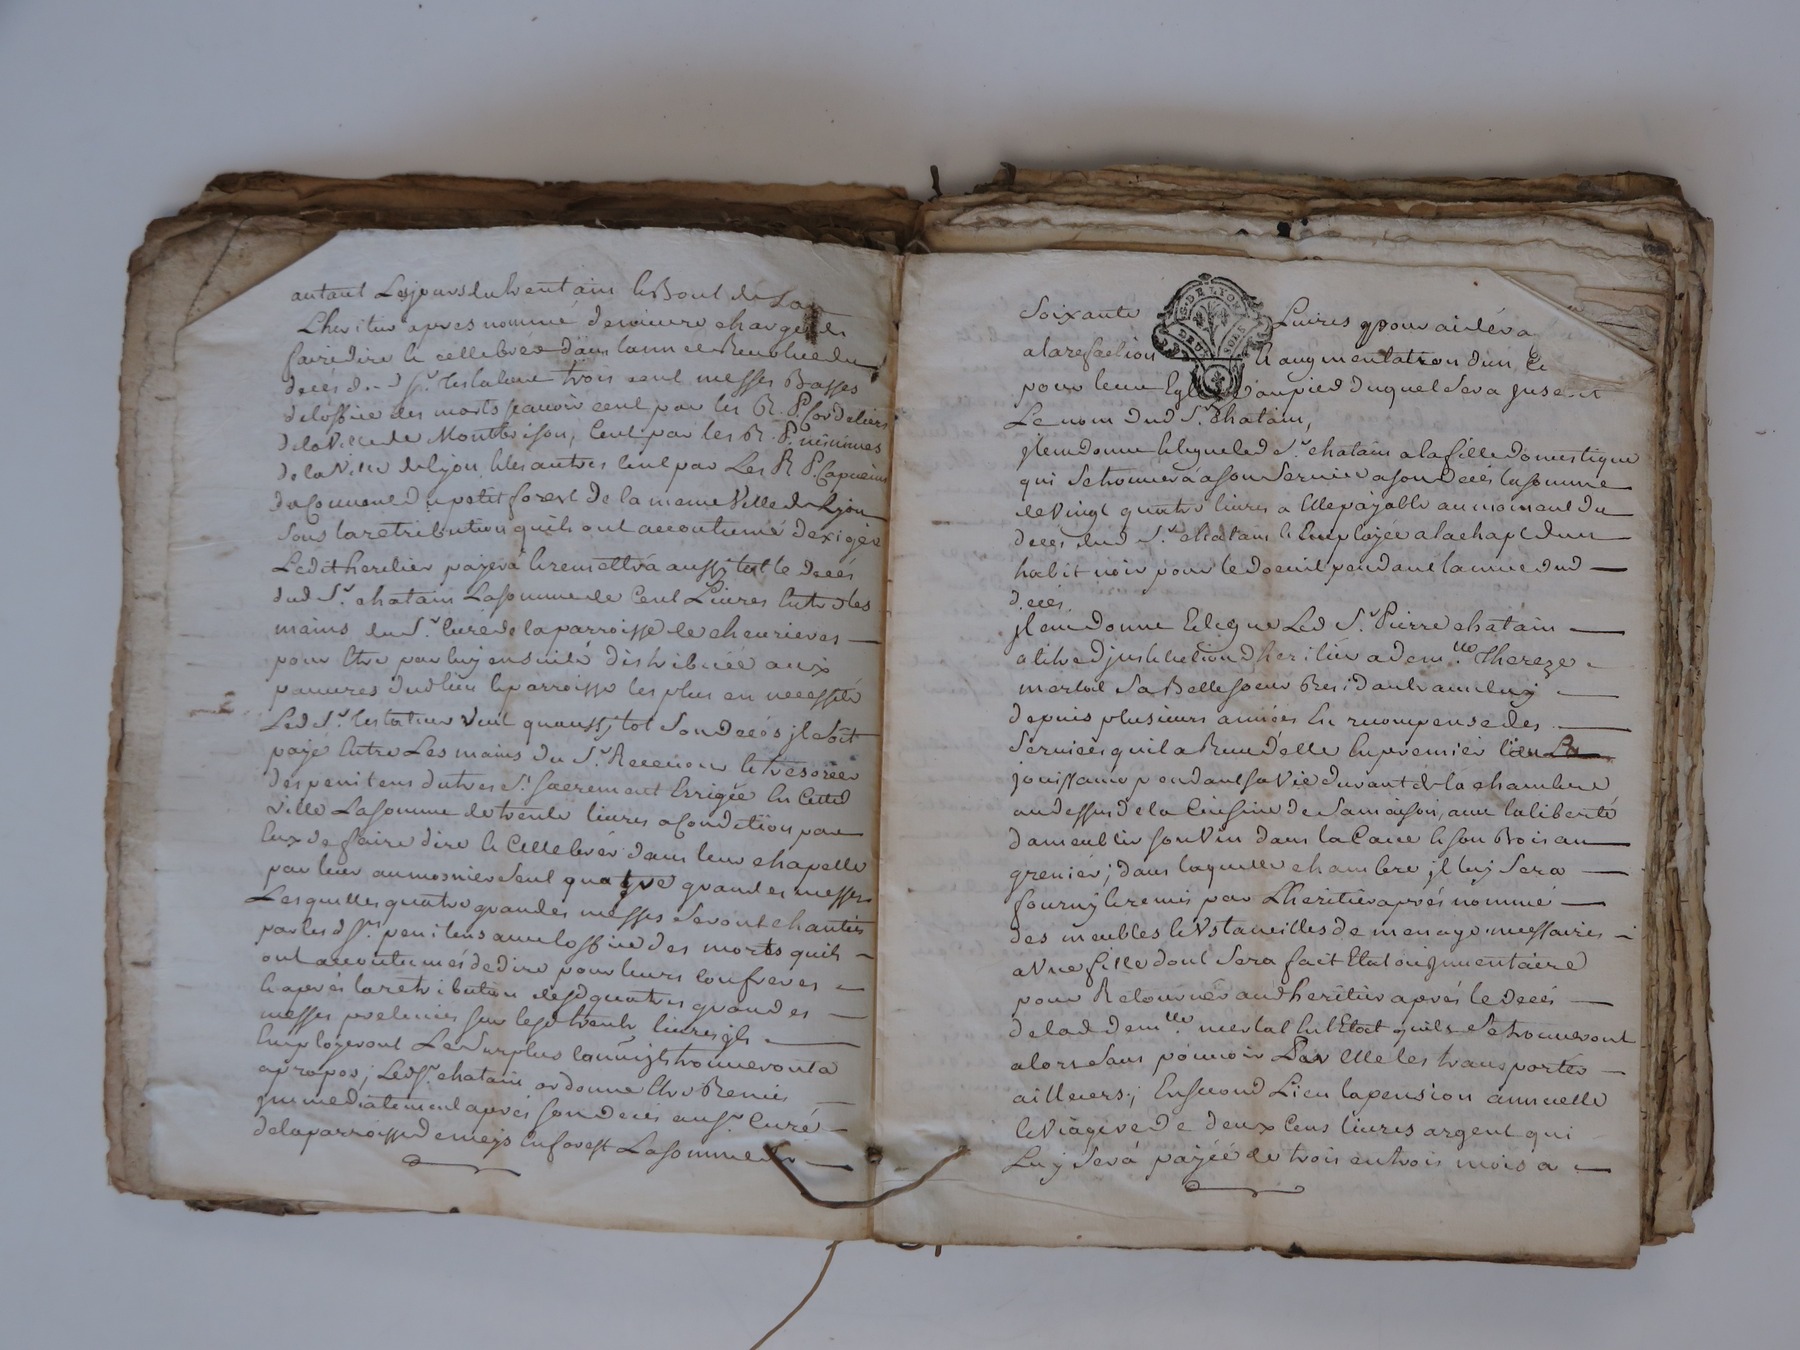 autant Les jours du trentain le Bout de L'an
Lheritier apres nommé demeure chargé de
faire dire et cellebrer dans lannee Revolue du
decés dud Sr. testateur trois cent messes Basses
de loffice des morts scavoir cent par les R. P. Cordeliers
de la Ville de Montbrison, Cent par les R. P. minimes
de la Ville de lyon et les autres Cent par Les R P. Capucins
du Couvent du petit forest de la meme Ville de Lyon
sous la retribution quils ont accoutumé dexiger
Ledit heritier payera et remettrá aussy tost le decés
dud Sr. chatain La somme de Cent Livres Entre les
mains du Sr. Curé de la parroisse de chevrieres
pour Etre par luy ensuite distribuéé aux
pauvres dud lieu et parroisse les plus en necessité
Led Sr. testateur veut quaussy tot son decés jl soit
payé Entre Les mains du Sr. Receveur et tresorier
des penitens du tres St. sacrement Errigée En Cette
ville La somme de trente livres a Condition par
Eux de faire dire et Cellebrer dans leur chapelle
par leur aumosnier seul quatre grandes messes
Lesquelles quatre grandes messes seront chantées
par lesd Srs. penitens avec loffice des morts quils
ont accoutumés de dire pour leurs confreres
et aprés la retribution desd quatre grandes
messes prelevées sur lesd trente livres jls
Employeront Le surplus comme jls trouveront a
apropos; Led Sr. chatain ordonne Etre Remis
jmmediatement aprés son decés au Sr. Curé
de la parroisse de meys En forest La somme de
Soixante Livres pour aider a
a la refaction et augmentation dun
pour leur Eglise au pied duquel sera jnserit
Le nom dud Sr. Chatain,
jtem donne et legue led Sr. chatain a la fille domestique
qui se trouvera a son service a son decés la somme
de vingt quatre livres a Elle payable au moment du
decés dud Sr. chatain et Employée a lachapt dun
habit noir pour le doeuil pendant lannee dud
decés,
jtem donne et legue Led Sr. Pierre chatain
a titre djnstitution dheritier a demlle. Thereze
mertal sa Belle soeur Residante avec luy
depuis plusieurs années En recompense des
services quil a Receu d'elle En premier lieu La
jouissance pendant sa vie durant de la chambre
au dessus de la Cuisine de sa maison, avec la liberté
dameublir son vin dans la Cave et son Bois au
grenier; dans laquelle chambre jl luy sera
fourny et remis par Lheritier aprés nommé
des meubles et Ustancilles de menage necessaires
a Une fille dont sera fait Etat
pour Retourner aud heritier aprés le decés
de lad demlle. mertal En l'Etat quils se trouveront
alors sans pouvoir Par Elle les transporter
ailleurs; En second Lieu la pension annuelle
et viagere de deux Cens livres argent qui
Luy serà payéé de trois en trois mois a